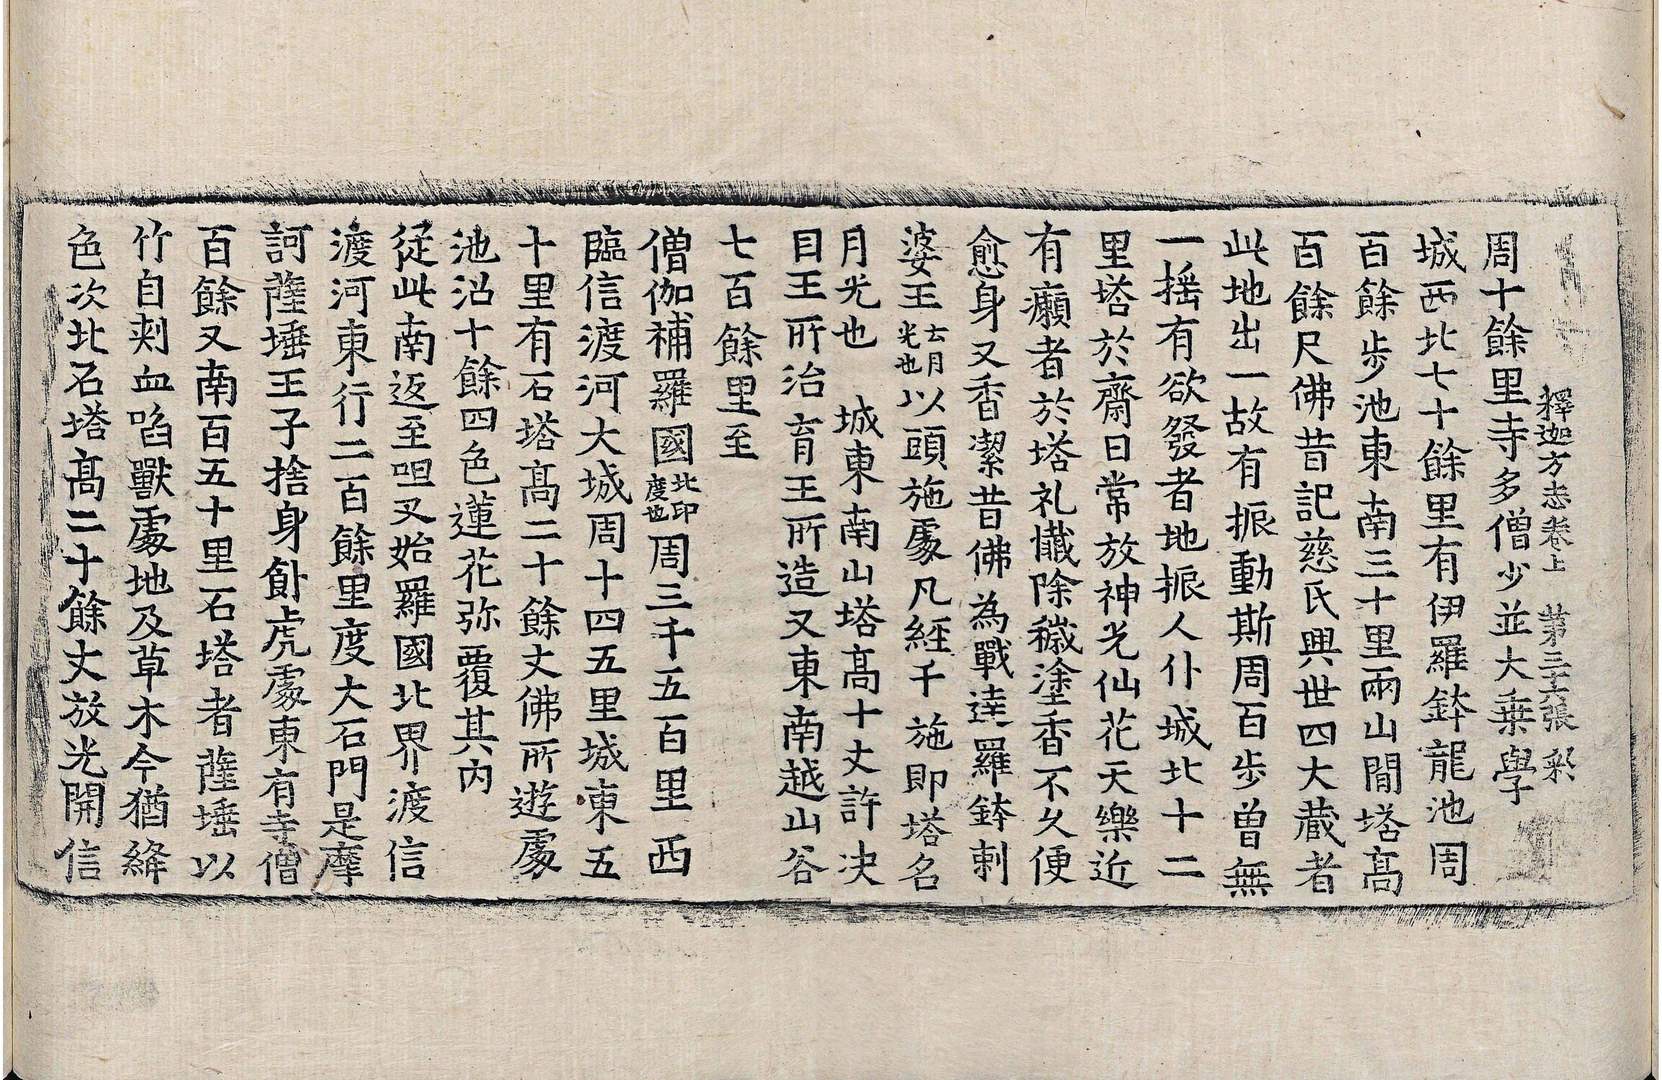 釋迦方志卷上 第三十六張 彩
周十餘里寺多僧少並大乗學
城西北七十餘里有伊羅鉢龍池周
百餘步池東南三十里兩山間塔髙
百餘尺佛昔記慈氏興世四大藏者
此地出一故有振動斯周百步曾無
一揺有欲發者地振人仆城北十二
里塔於齋日常放神光仙花天樂近
有癩者於塔礼懴除穢塗香不久便
愈身又香潔昔佛為戰達羅鉢剌
婆王去月光也以頭施處凡經千施即塔名
月光也 城東南山塔髙十丈許決
目王所治育王所造又東南越山谷
七百餘里至
僧伽補羅國北印度也周三千五百里西
臨信渡河大城周十四五里城東五
十里有石塔髙二十餘丈佛所遊處
池沼十餘四色蓮花弥覆其内
從此南返至呾叉始羅國北界渡信
渡河東行二百餘里度大石門是摩
訶薩埵王子捨身飤虎處東有寺僧
百餘又南百五十里石塔者薩埵以
竹自刾血啗獸處地及草木今猶絳
色次北石塔髙二十餘丈放光開信